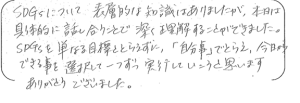 SDGsについて 表層的な知識はありましたが、本日は
具体的に話し合うことで深く理解することができました。
SDGsを単なる目標ととらえずに、「自分事」でとらえ、今日から
できる事を選択して一つずつ実行していこうと思います
ありがとうございました。